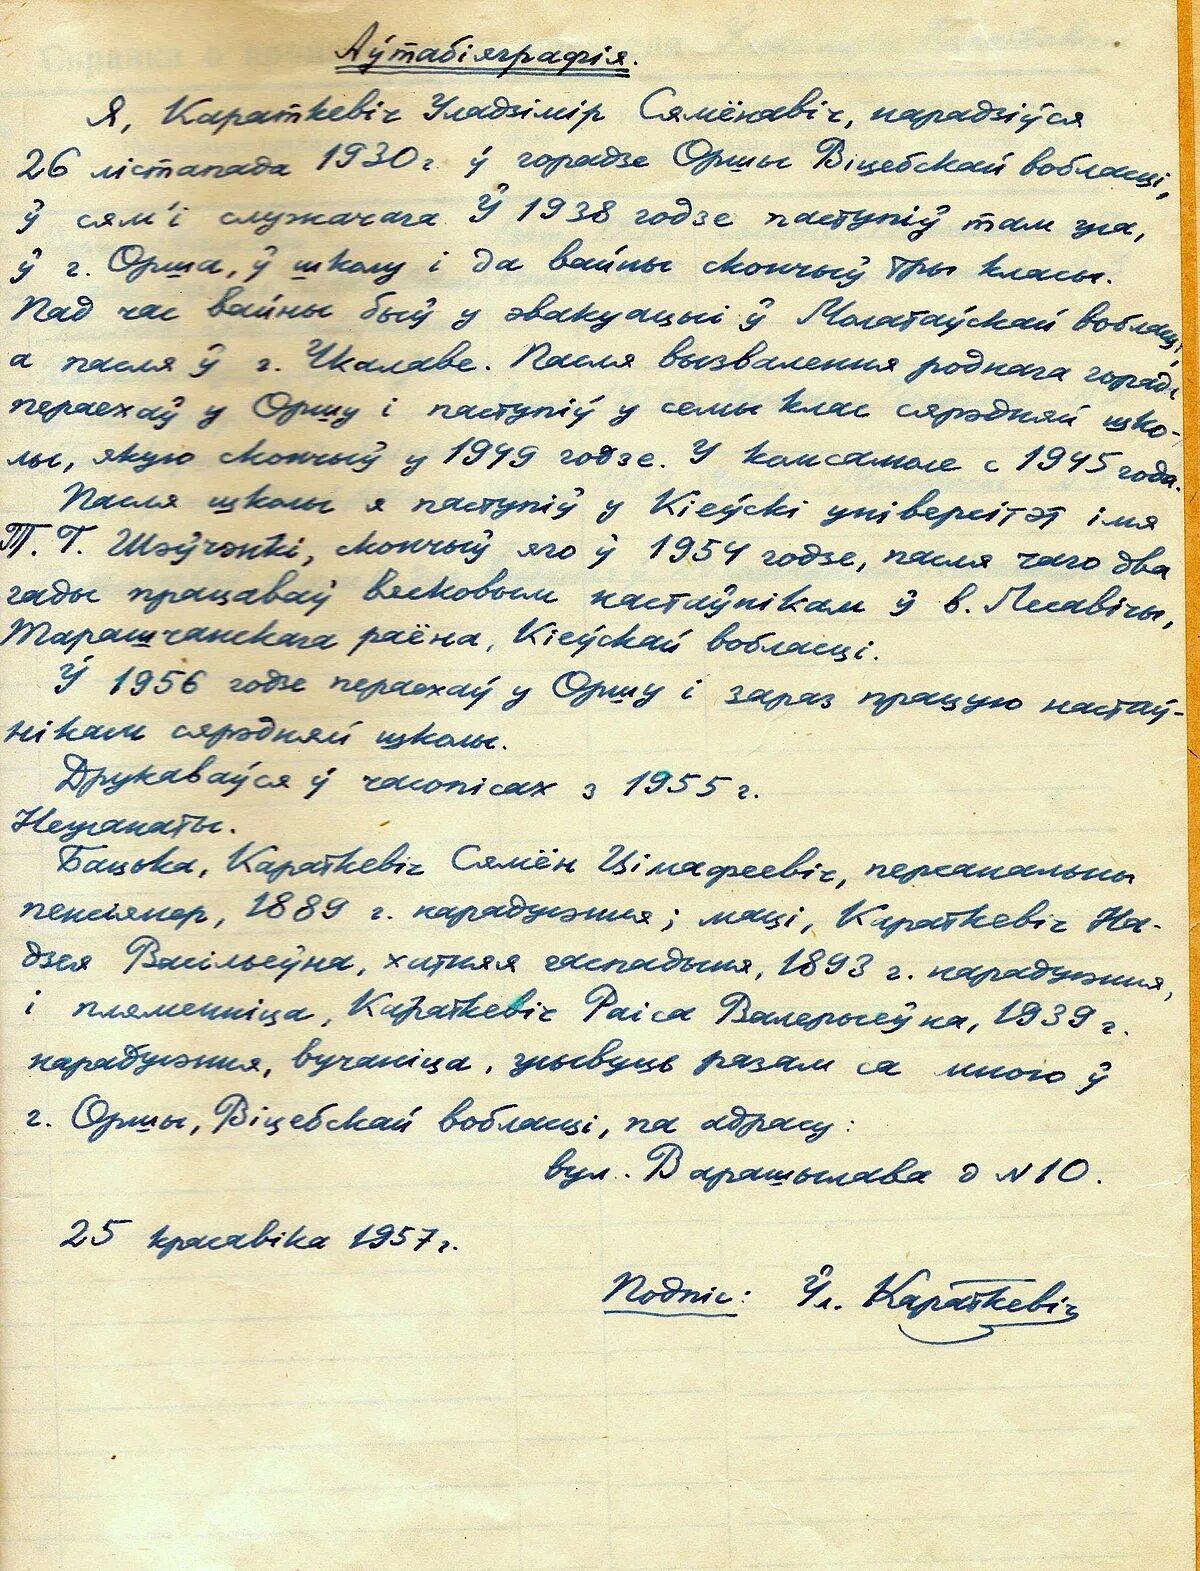 Аўтабіяграфія.
Я, Караткевіч Уладзімір Сямёнавіч, нарадзіўся
26 лістапада 1930 г. ў горадзе Оршы Віцебскай вобласці,
ў сям'і служачага. Ў 1938 годзе паступіў там жа,
ў г. Орша, ў школу і да вайны скончыў тры класы.
Пад час вайны быў у эвакуацыі ў Молатаўскай вобласці,
а пасля ў г. Чкалаве. Пасля вызвалення роднага горада
пераехаў у Оршу і паступіў у семы клас сярэдняй шко-
лы, якую скончыў у 1949 годзе. У камсамоле с 1945 года.
Пасля школы я паступіў у Кіеўскі універсітэт імя
Т. Г. Шэўчэнкі, скончыў яго ў 1954 годзе, пасля чаго два
гады працаваў вясковым настаўнікам ў в. Лесавічы,
Тарашчанскага раёна, Кіеўскай вобласці.
Ў 1956 годзе пераехаў у Оршу і зараз працую настаў-
нікам сярэдняй школы.
Друкаваўся ў часопісах з 1955 г.
Нежанаты.
Бацька, Караткевіч Сямён Цімафеевіч, персанальны
пенсіянер, 1889 г. нараджэння; маці, Караткевіч На-
дзея Васільеўна, хатняя гаспадыня, 1893 г. нараджэння,
і пляменніца, Караткевіч Раіса Валерыеўна, 1939 г.
нараджэння, вучаніца, жывуць разам са мною ў
г. Оршы, Віцебскай вобласці, па адрасу:
вул. Варашылава д № 10.
25 красавіка 1957 г.
Подпіс: Ўл. Караткевіч